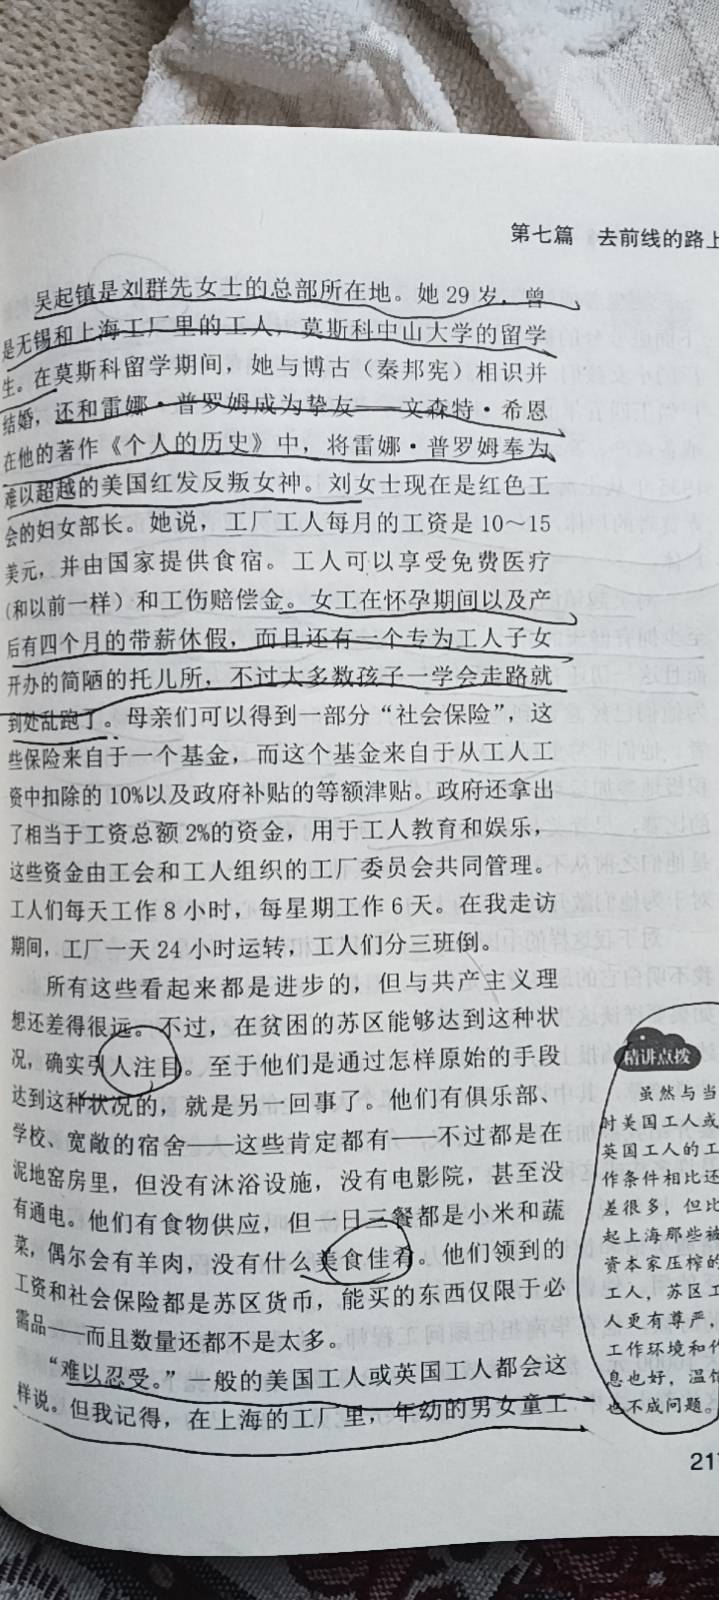 第七篇 去前线的路上
吴起镇是刘群先女士的总部所在地。她 29 岁，曾
是无锡和上海工厂里的工人，莫斯科中山大学的留学
生。在莫斯科留学期间，她与博古（秦邦宪）相识并
结婚，还和雷娜·普罗姆成为挚友——文森特·希恩
在他的著作《个人的历史》中，将雷娜·普罗姆奉为
难以超越的美国红发反叛女神。刘女士现在是红色工
会的妇女部长。她说，工厂工人每月的工资是 10～15
美元，并由国家提供食宿。工人可以享受免费医疗
（和以前一样）和工伤赔偿金。女工在怀孕期间以及产
后有四个月的带薪休假，而且还有一个专为工人子女
开办的简陋的托儿所，不过大多数孩子一学会走路就
到处乱跑了。母亲们可以得到一部分“社会保险”，这
些保险来自于一个基金，而这个基金来自于从工人工
资中扣除的 10%以及政府补贴的等额津贴。政府还拿出
了相当于工资总额 2%的资金，用于工人教育和娱乐，
这些资金由工会和工人组织的工厂委员会共同管理。
工人们每天工作 8 小时，每星期工作 6 天。在我走访
期间，工厂一天 24 小时运转，工人们分三班倒。
所有这些看起来都是进步的，但与共产主义理
想还差得很远。不过，在贫困的苏区能够达到这种状
况，确实引人注目。至于他们是通过怎样原始的手段
达到这种状况的，就是另一回事了。他们有俱乐部、
学校、宽敞的宿舍——这些肯定都有——不过都是在
泥地窑房里，但没有沐浴设施，没有电影院，甚至没
有通电。他们有食物供应，但一日三餐都是小米和蔬
菜，偶尔会有羊肉，没有什么美食佳肴。他们领到的
工资和社会保险都是苏区货币，能买的东西仅限于必
需品——而且数量还都不是太多。
“难以忍受。”一般的美国工人或英国工人都会这
样说。但我记得，在上海的工厂里，年幼的男女童工
精讲点拨
虽然与当
时美国工人或
英国工人的工
作条件相比还
差很多，但比
起上海那些被
资本家压榨的
工人，苏区工
人更有尊严，
工作环境和作
息也好，温饱
也不成问题。
21